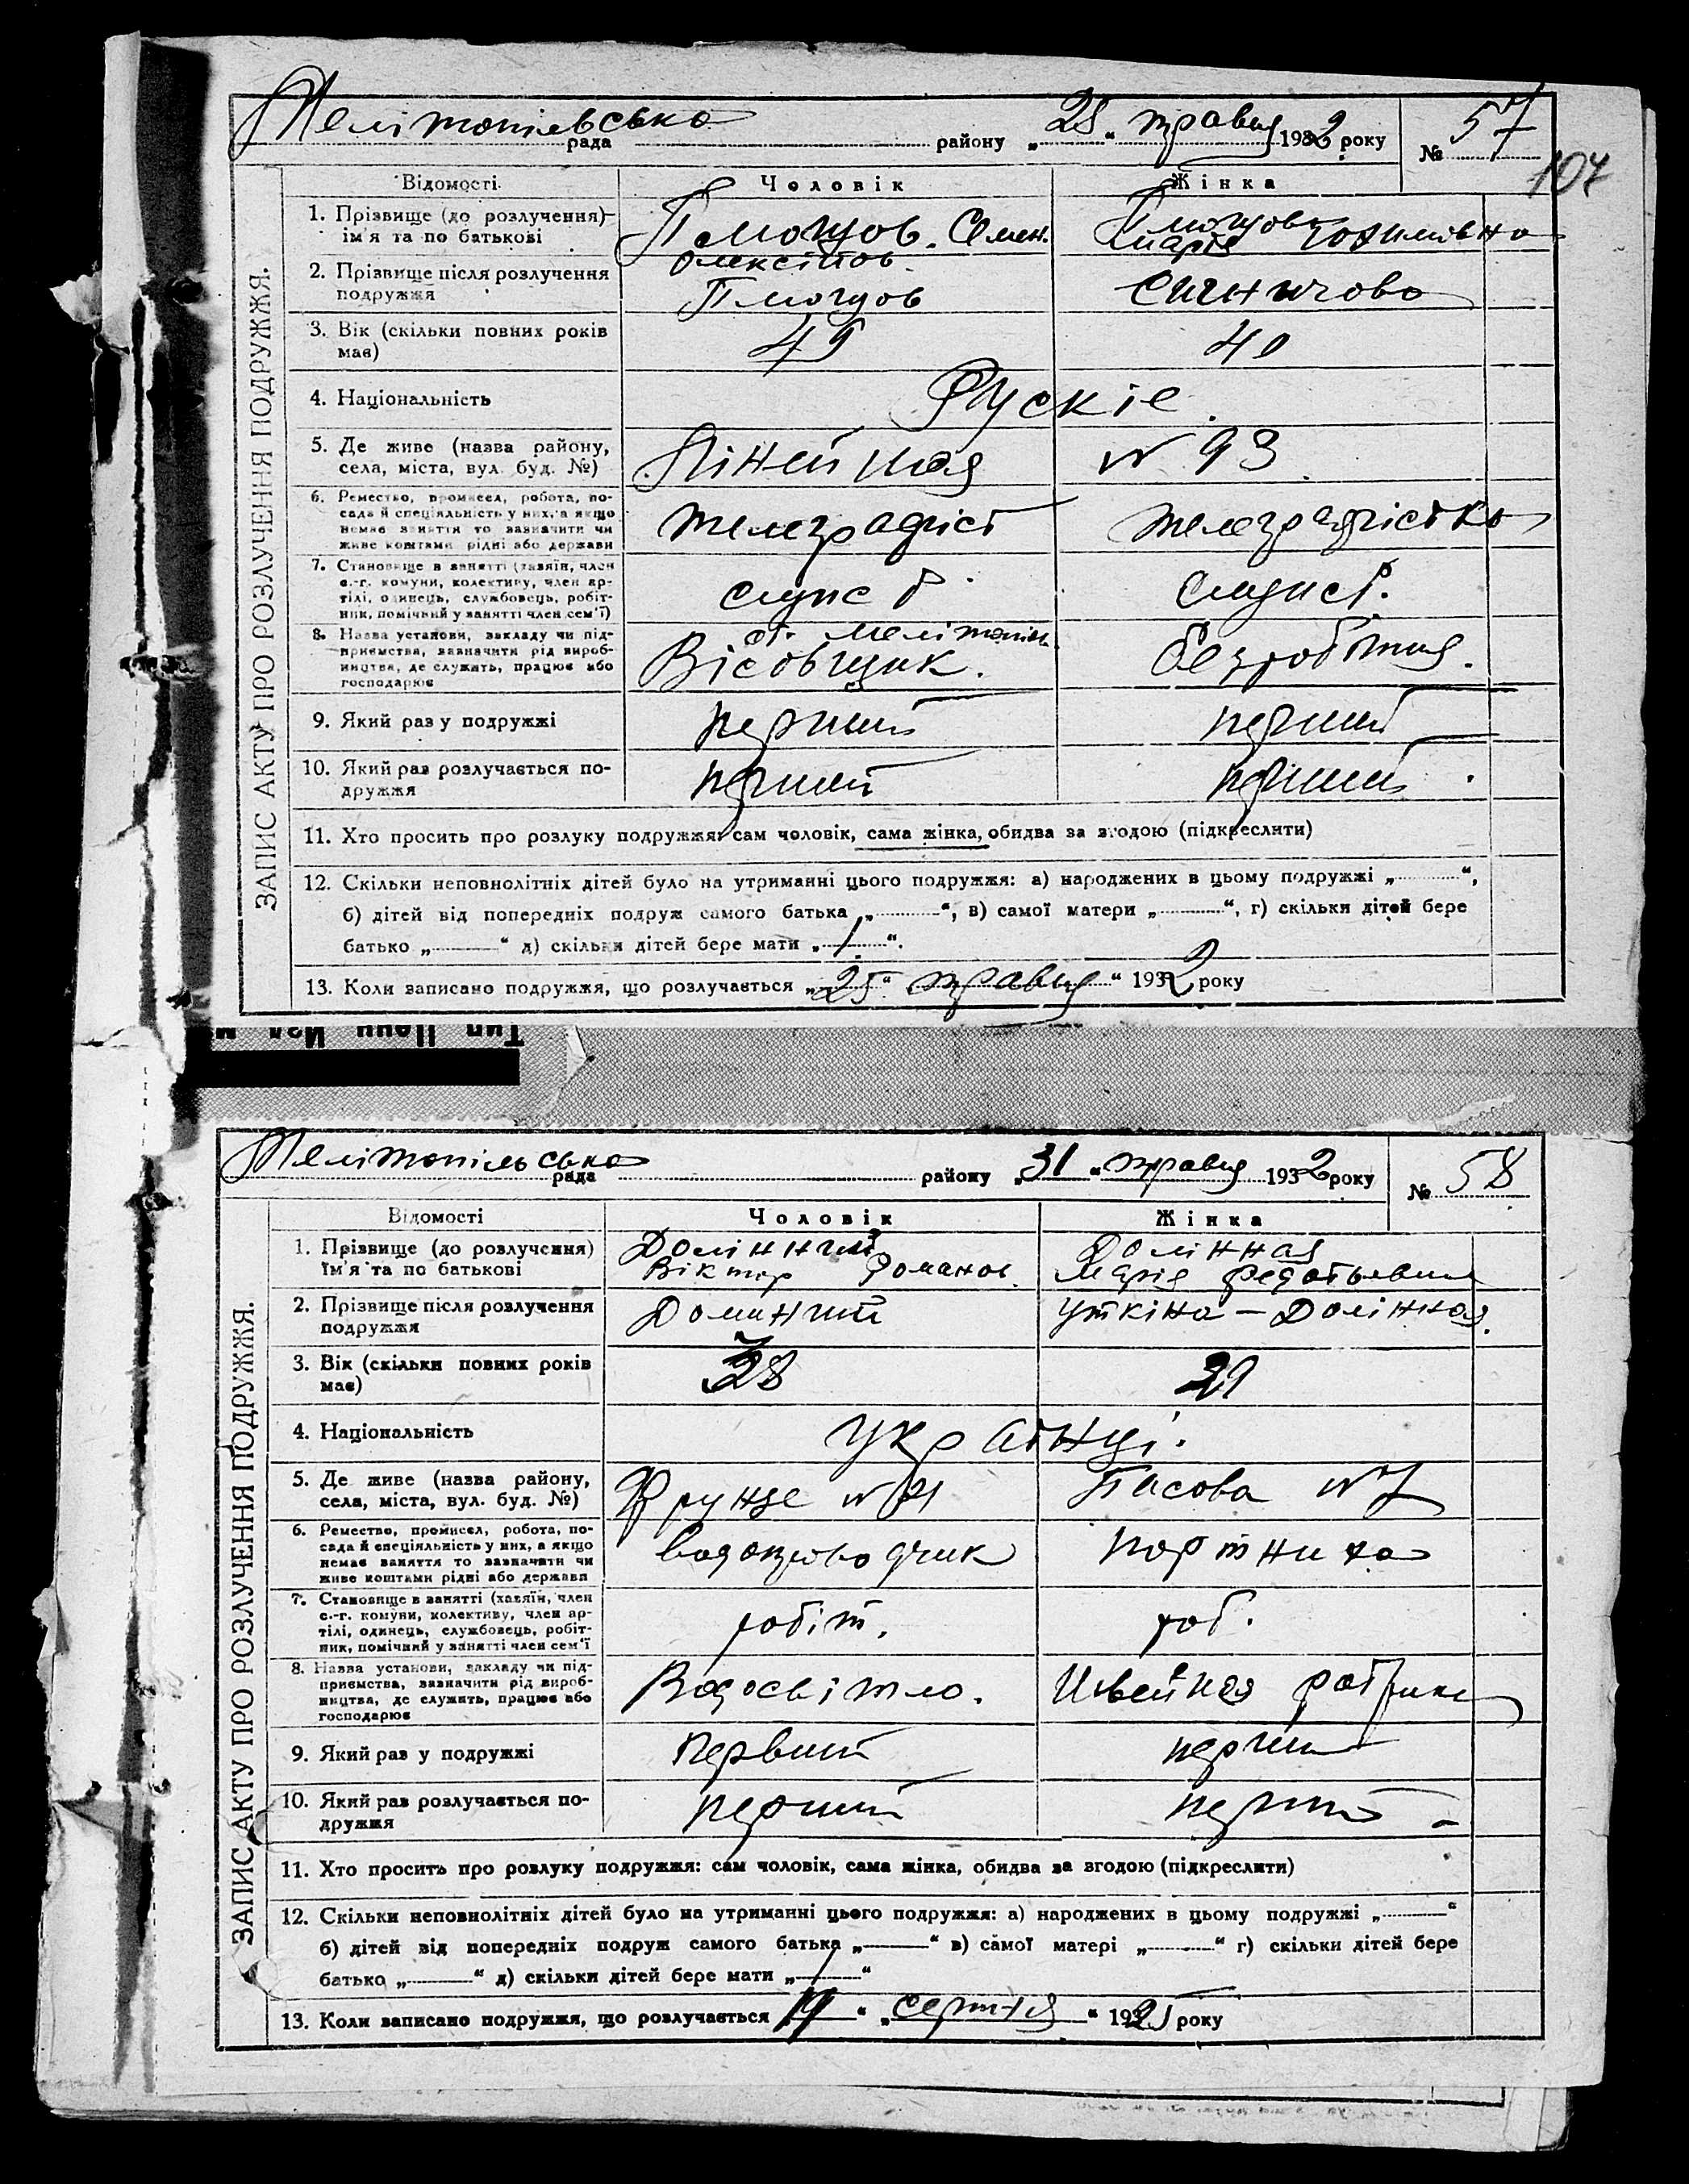 Мелітопільська рада району „28“ травня 1932 року № 57
107
ЗАПИС АКТУ ПРО РОЗЛУЧЕННЯ ПОДРУЖЖЯ.
Відомості Чоловік Жінка
1. Прізвище (до розлучення) ім'я та по батькові
Семен.
Марія Юхимівна
2. Прізвище після розлучення подружжя
3. Вік (скільки повних років має) 49 40
4. Національність Рускіе.
5. Де живе (назва району, села, міста, вул. буд. №) Лінейная № 93
6. Ремество, промисел, робота, посада й спеціяльність у них, а якщо немає заняття то зазначити чи живе коштами рідні або держави телеграфіст телеграфістка
7. Становище в занятті (хазяїн, член с.-г. комуни, колективу, член артілі, одинець, службовець, робітник, помічний у занятті член сем'ї)
8. Назва установи, закладу чи підприємства, зазначити рід виробництва, де служить, працює або господарює ст. Мелітопіль Вісовщик. безробітня.
9. Який раз у подружжі перший перший
10. Який раз розлучається подружжя перший перший
11. Хто просить про розлуку подружжя: сам чоловік, сама жінка, обидва за згодою (підкреслити)
12. Скільки неповнолітніх дітей було на утриманні цього подружжя: а) народжених в цьому подружжі „ “,
б) дітей від попередніх подруж самого батька „ “, в) самої матери „ “, г) скільки дітей бере
батько „ “ д) скільки дітей бере мати „1“.
13. Коли записано подружжя, що розлучається „25“ травня “ 1932 року
Мелітопільська рада району „31“ травня 1932 року № 58
ЗАПИС АКТУ ПРО РОЗЛУЧЕННЯ ПОДРУЖЖЯ.
Відомості Чоловік Жінка
1. Прізвище (до розлучення) ім'я та по батькові
Долінний Долінная
Віктор Романов. Марія
2. Прізвище після розлучення подружжя Долинний Уткіна – Долінная.
3. Вік (скільки повних років має) 28
4. Національність Українці.
5. Де живе (назва району, села, міста, вул. буд. №) Фрунзе №
6. Ремество, промисел, робота, посада й спеціяльність у них, а якщо немає заняття то зазначити чи живе коштами рідні або держави водопроводчик портниха
7. Становище в занятті (хазяїн, член с.-г. комуни, колективу, член артілі, одинець, службовець, робітник, помічний у занятті член сем'ї робіт. роб.
8. Назва установи, закладу чи підприємства, зазначити рід виробництва, де служить, працює або господарює Водосвітло. Швейная фабрика
9. Який раз у подружжі первий перший
10. Який раз розлучається подружжя перший перший
11. Хто просить про розлуку подружжя: сам чоловік, сама жінка, обидва за згодою (підкреслити)
12. Скільки неповнолітніх дітей було на утриманні цього подружжя: а) народжених в цьому подружжі „ “
б) дітей від попередніх подруж самого батька „ “ в) самої матері „ “ г) скільки дітей бере
батько „ “ д) скільки дітей бере мати „1“
13. Коли записано подружжя, що розлучається “ „серпня “ року